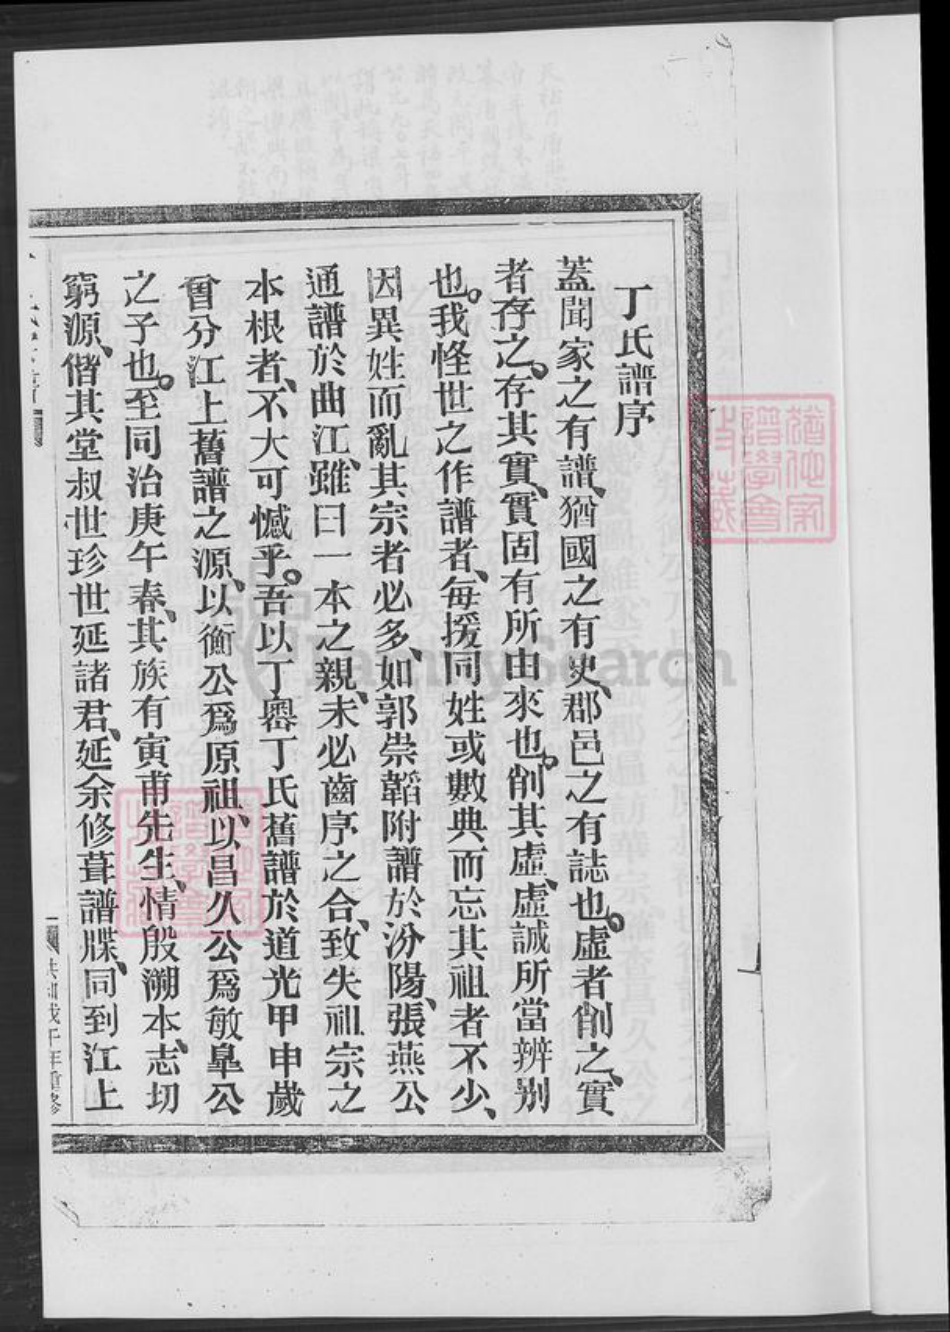 丁氏譜序
蓋聞家之有譜、猶國之有史、郡邑之有誌也。虛者削之、實
者存之。存其實、實固有所由來也。削其虛、虛誠所當辨别
也。我怪世之作譜者、每援同姓或數典而忘其祖者不少、
因異姓而亂其宗者必多、如郭崇韜附譜於汾陽、張燕公
通譜於曲江、雖曰一本之親、未必齒序之合、致失祖宗之
本根者、不大可憾乎。吾以丁嶴丁氏舊譜於道光甲申歲
曾分江上舊譜之源、以衡公爲原祖、以昌久公爲敏臯公
之子也。至同治庚午春、其族有寅甫先生、情殷溯本、志切
窮源、偕其堂叔世珍世延諸君、延余修葺譜牒、同到江上
戊午年重修
FamilySearch